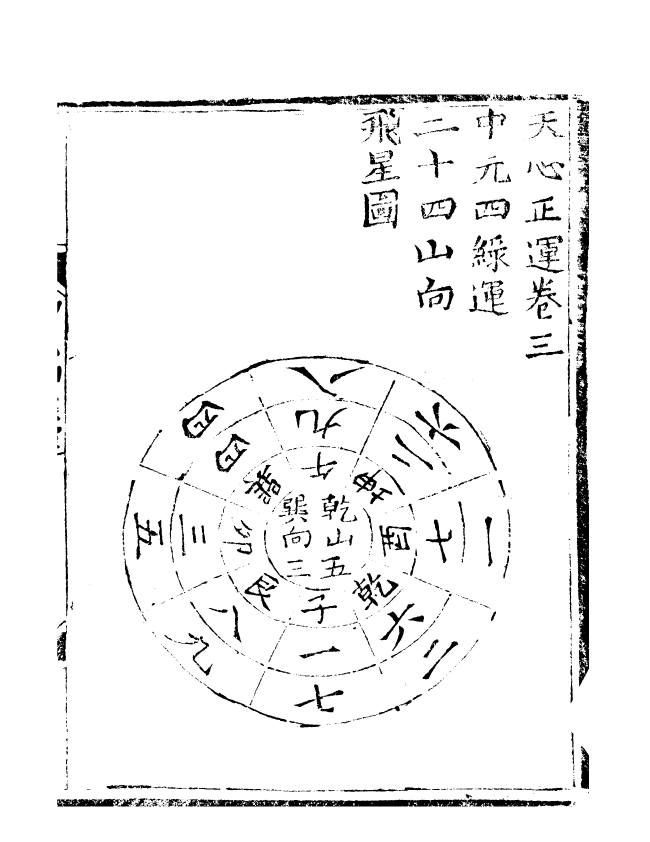 天心正運卷三
中元四綠運
二十四山向
飛星圖
乾山五
巽向三
午坤酉乾子艮卯巽
九二七六一八三四
八六一二七九五四